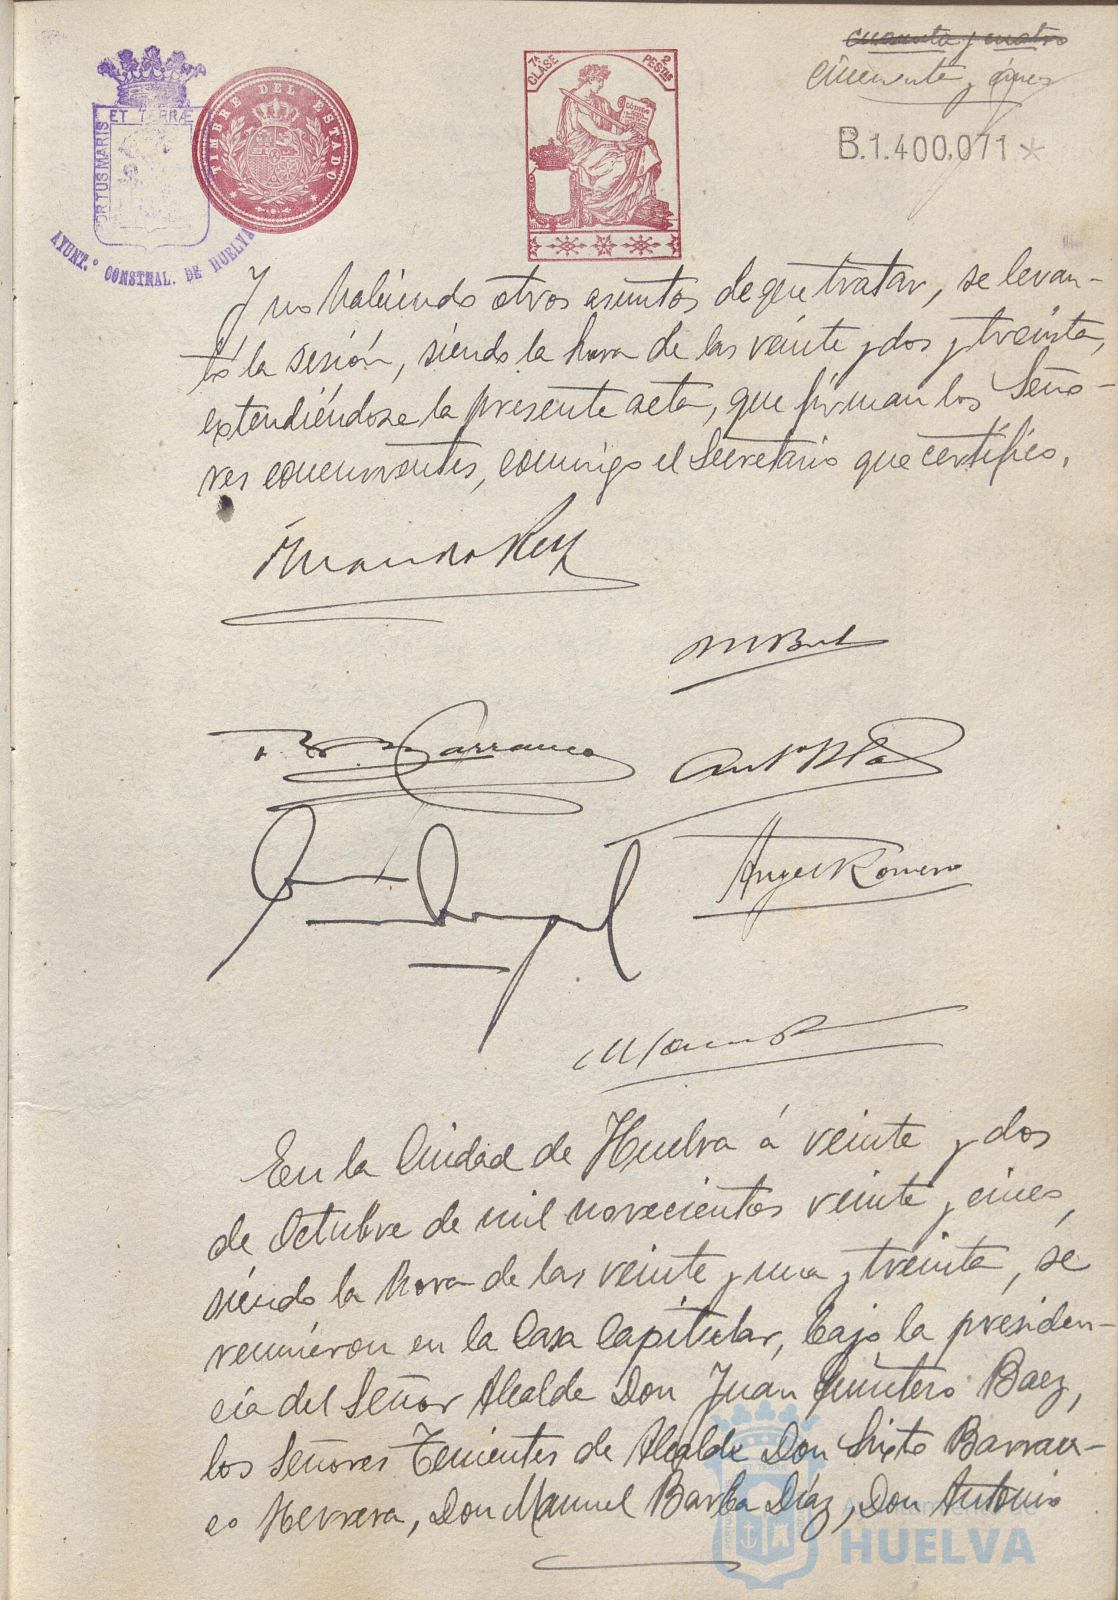 cuarenta y cuatro
cincuenta y cinco
B.1.400.071*
7ª CLASE
2 PESTAS
CÓDIGO
TIMBRE DEL ESTADO
PORTUS MARIS ET TERRÆ
AYUNT.º CONSTNAL. DE HUELVA
Y no habiendo otros asuntos de que tratar, se levan-
tó la sesión, siendo la hora de las veinte y dos y treinta,
extendiéndose la presente acta, que firman los Seño-
res concurrentes, conmigo el Secretario que certifico.
Barranco
Angel Romero
En la Ciudad de Huelva á veinte y dos
de Octubre de mil novecientos veinte y cinco,
siendo la hora de las veinte y una y treinta, se
reunieron en la Casa Capitular, bajo la presiden-
cia del Señor Alcalde Don Juan Quintero Baez,
los Señores Tenientes de Alcalde Don Sixto Barran-
co Herrera, Don Manuel Barba Díaz, Don Antonio
Ayuntamiento de
HUELVA